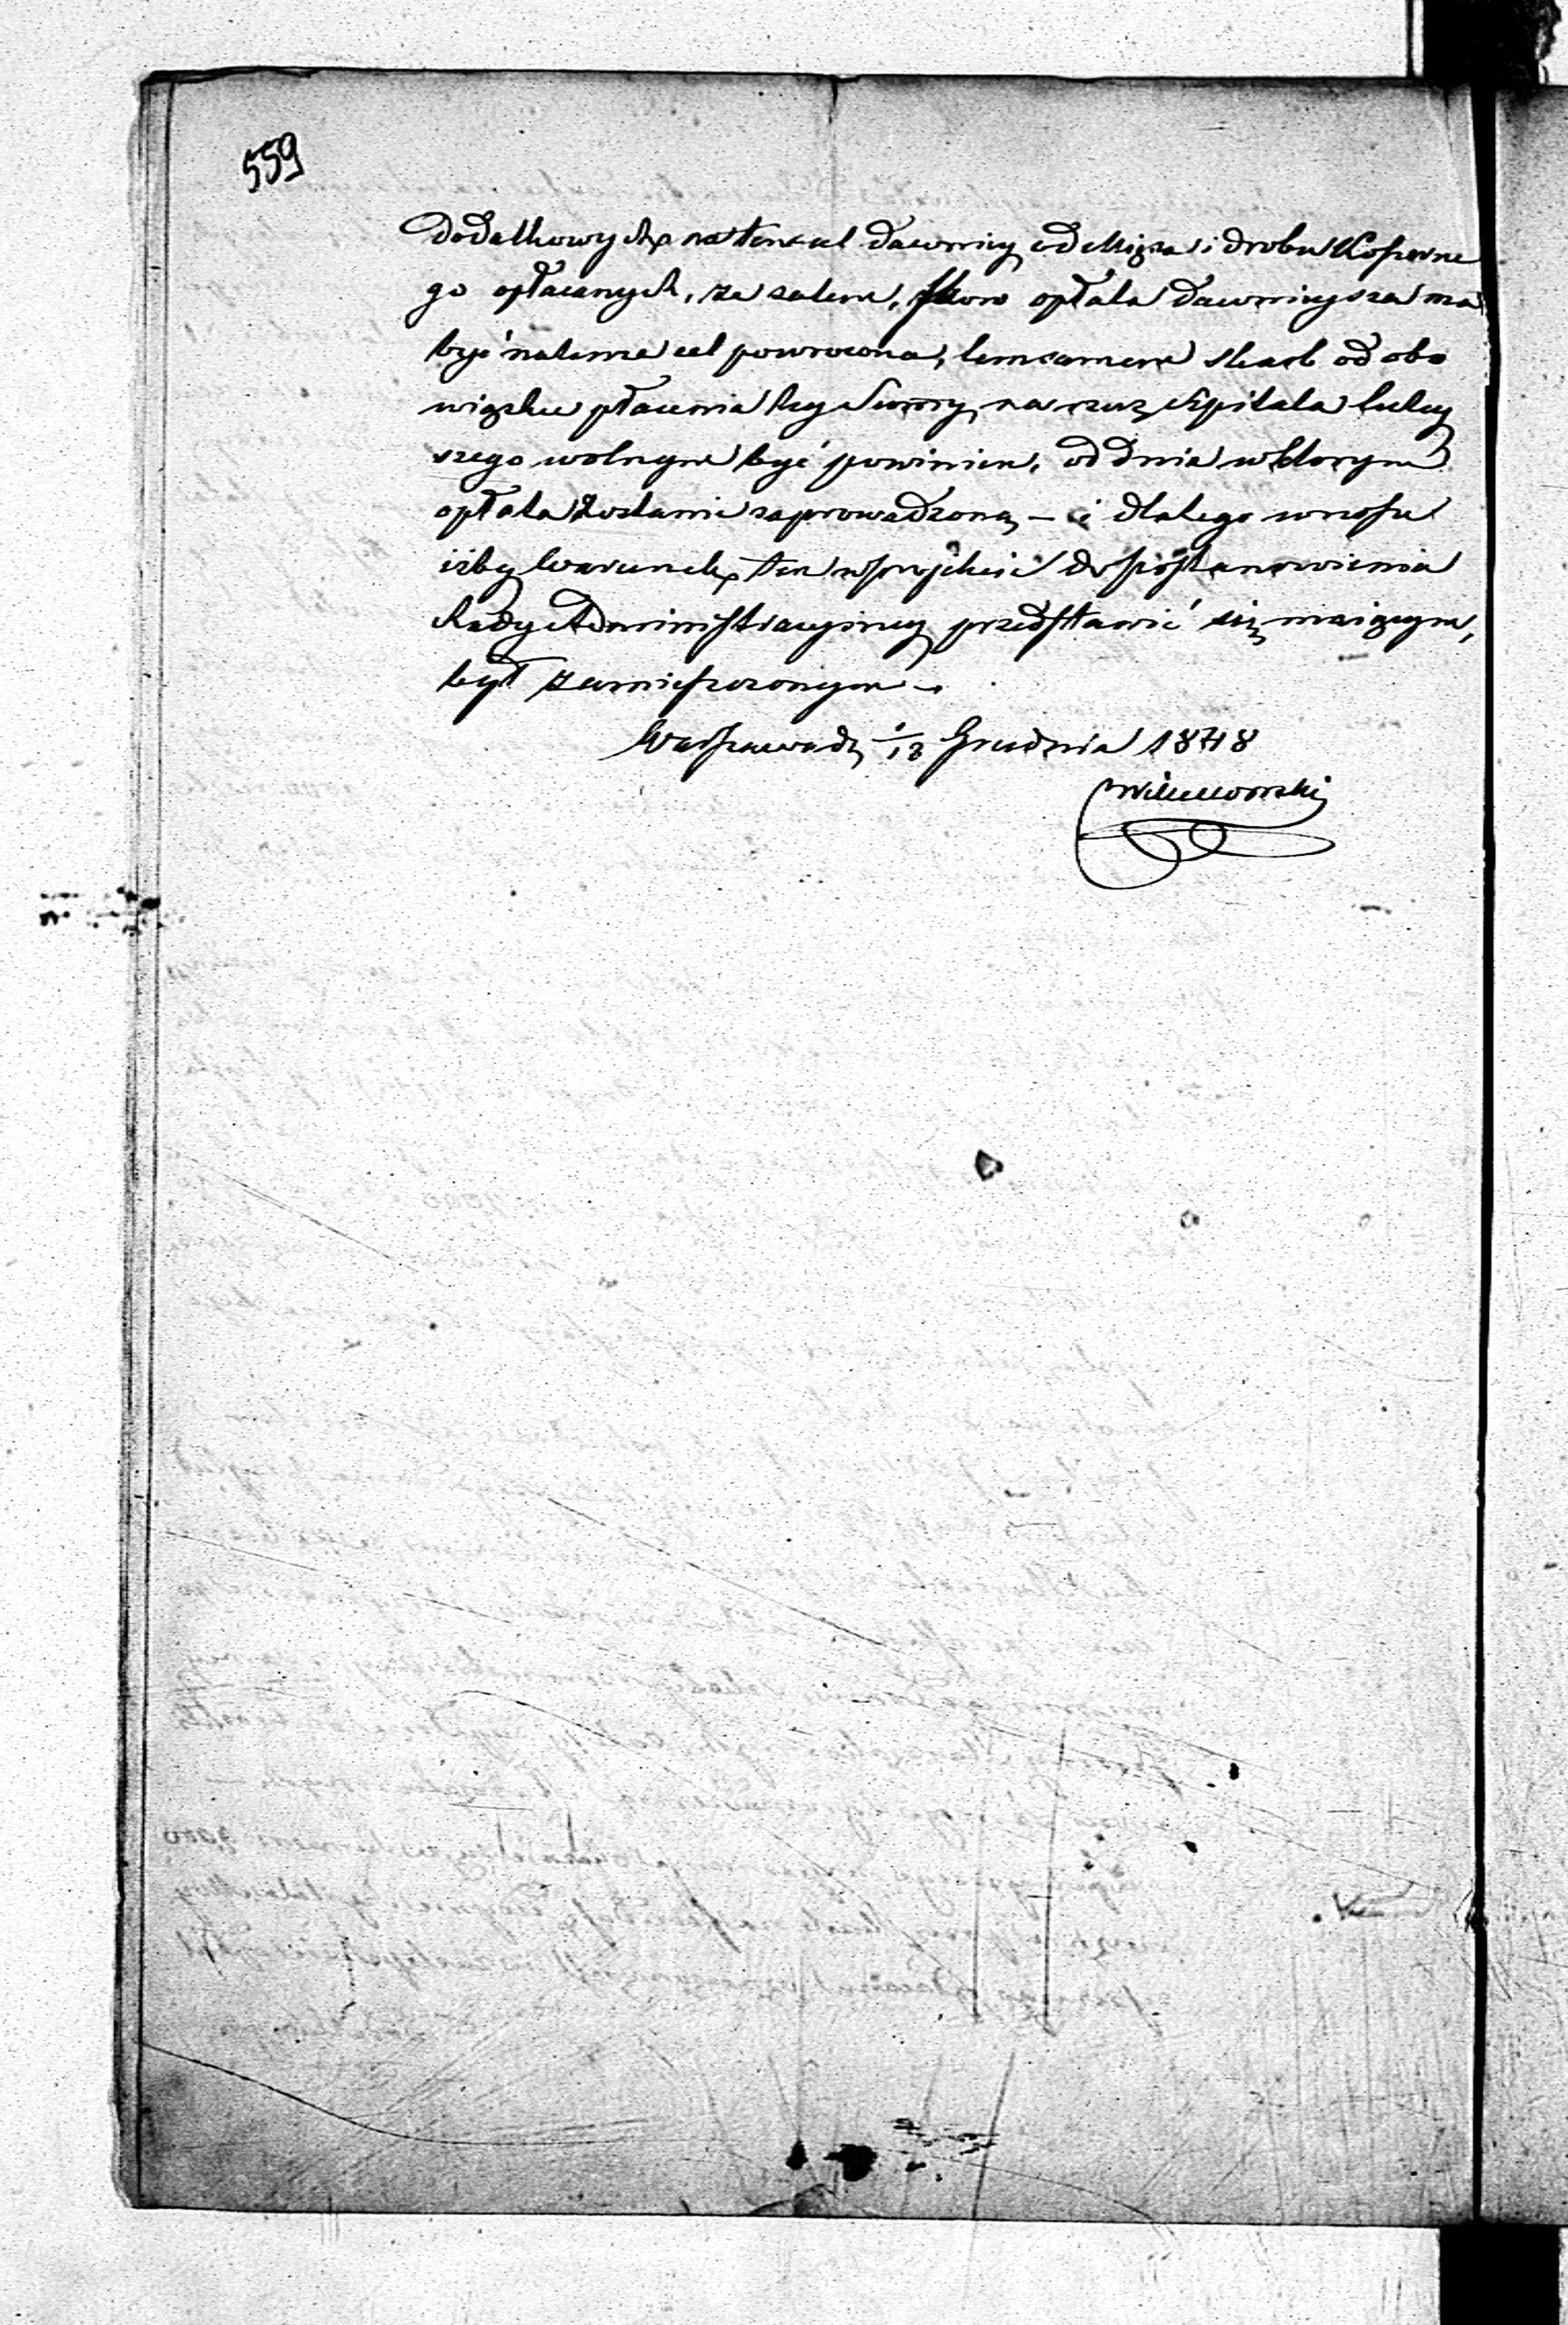 559
Dodatkowych, na ten cel dawniey od Mięsa i drobiu Koszerne
go opłacanych, że zatem, skoro opłata dawnieysza ma
być na tenże cel powrocona, tem samem skarb od obo
wiązku płacenia tey Summy na rzecz Szpitala tutey
szego wolnym być powinien, od dnia w ktorym
opłata zostanie zaprowadzoną – i dlatego wnoszę
iżby warunek ten w projekcie do postanowienia
Rady Administracyiney przedstawić się maiącym,
był zamieszczonym –
Warszawa d. 1/13 Grudnia 1848